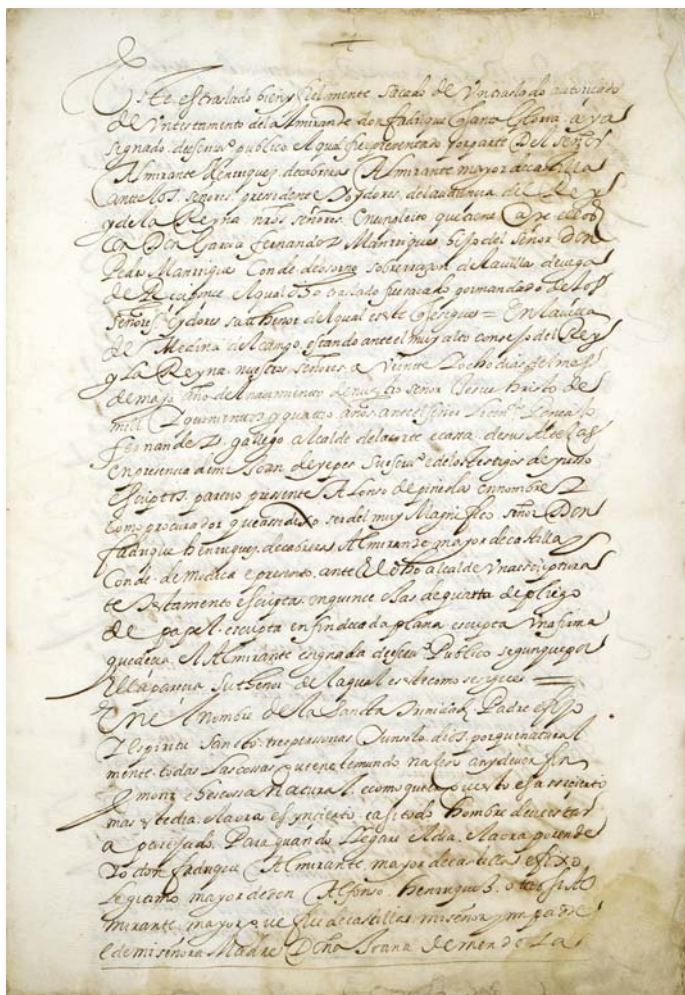 Este es traslado bien y fielmente sacado de Untraslado autoricado
de Untestamento del Almirande don fadrique q̃ Sancta Gloria aya
signado descriuᵒ publico El qual fue presentado por parte Del señor
Almirante Henrriquez decabrera Almirante mayor de castilla
ante los señores presidente Joydores delaudiencia del Rey
y de la Reyna nr̃os señores En un pleito que tiene
Con Don Garcia fernandez Manrrique hijo del Señor Don
Pedro Manrrique Conde deosorno sobre rracon de la uilla deuega
de El qual dho traslado fue sacado por mandado de los
señores oydores su thenor del qual es este q̃ sesigue = En la uilla
de Medina del campo estando ante el muy alto consejo del Rey
y La Reyna nuestros señores a Veinte Jocho dias del mes
de mayo año del nascimiento de nuestro señor Jesue christo de
mill E quinientos y quatro años ante el señor licenᵈᵒ
fernandez gallego alcalde de la corte e casa de sus Altecas
en presencia de mi Joan de yepes su escriuᵒ e de los testigos de yusso
escriptos parecio presente Alonso de pineda en nombre E
como procurador que assi dixo ser del muy Magnifico señor Don
fadrique henrriquez de cabrera Almirande mayor de castilla
Conde de modica e presento ante El dho alcalde Una escriptura
de testamento escripta en quince ojas de quarta de pliego
de papel escripta en fin de cada plana escripta Una firma
que decia El Almirante e signada descriuᵒ Publico segun que por
Ella parecia Su thenor de la qual es este como se sigue =
En el Nombre de la Sancta trinidad Padre e fijo
E espiritu Sancto tres personas E un solo dios porque natural
mente todas las cossas que en el mundo nascen an de auer fin
morir es cossa Natural e como quier que esto es assi cierto
mas el dia e la ora es yncierto casi todo hombre deue estar
apercebido Para quando llegare el dia e la ora porende
Yo don fadrique Almirante mayor de castilla e fixo
Legitimo mayor de don Alfonso henrriquez Al
mirante mayor que fue de castilla mi señor y mi padre
e de mi señora Madre Doña Juana de mendoza